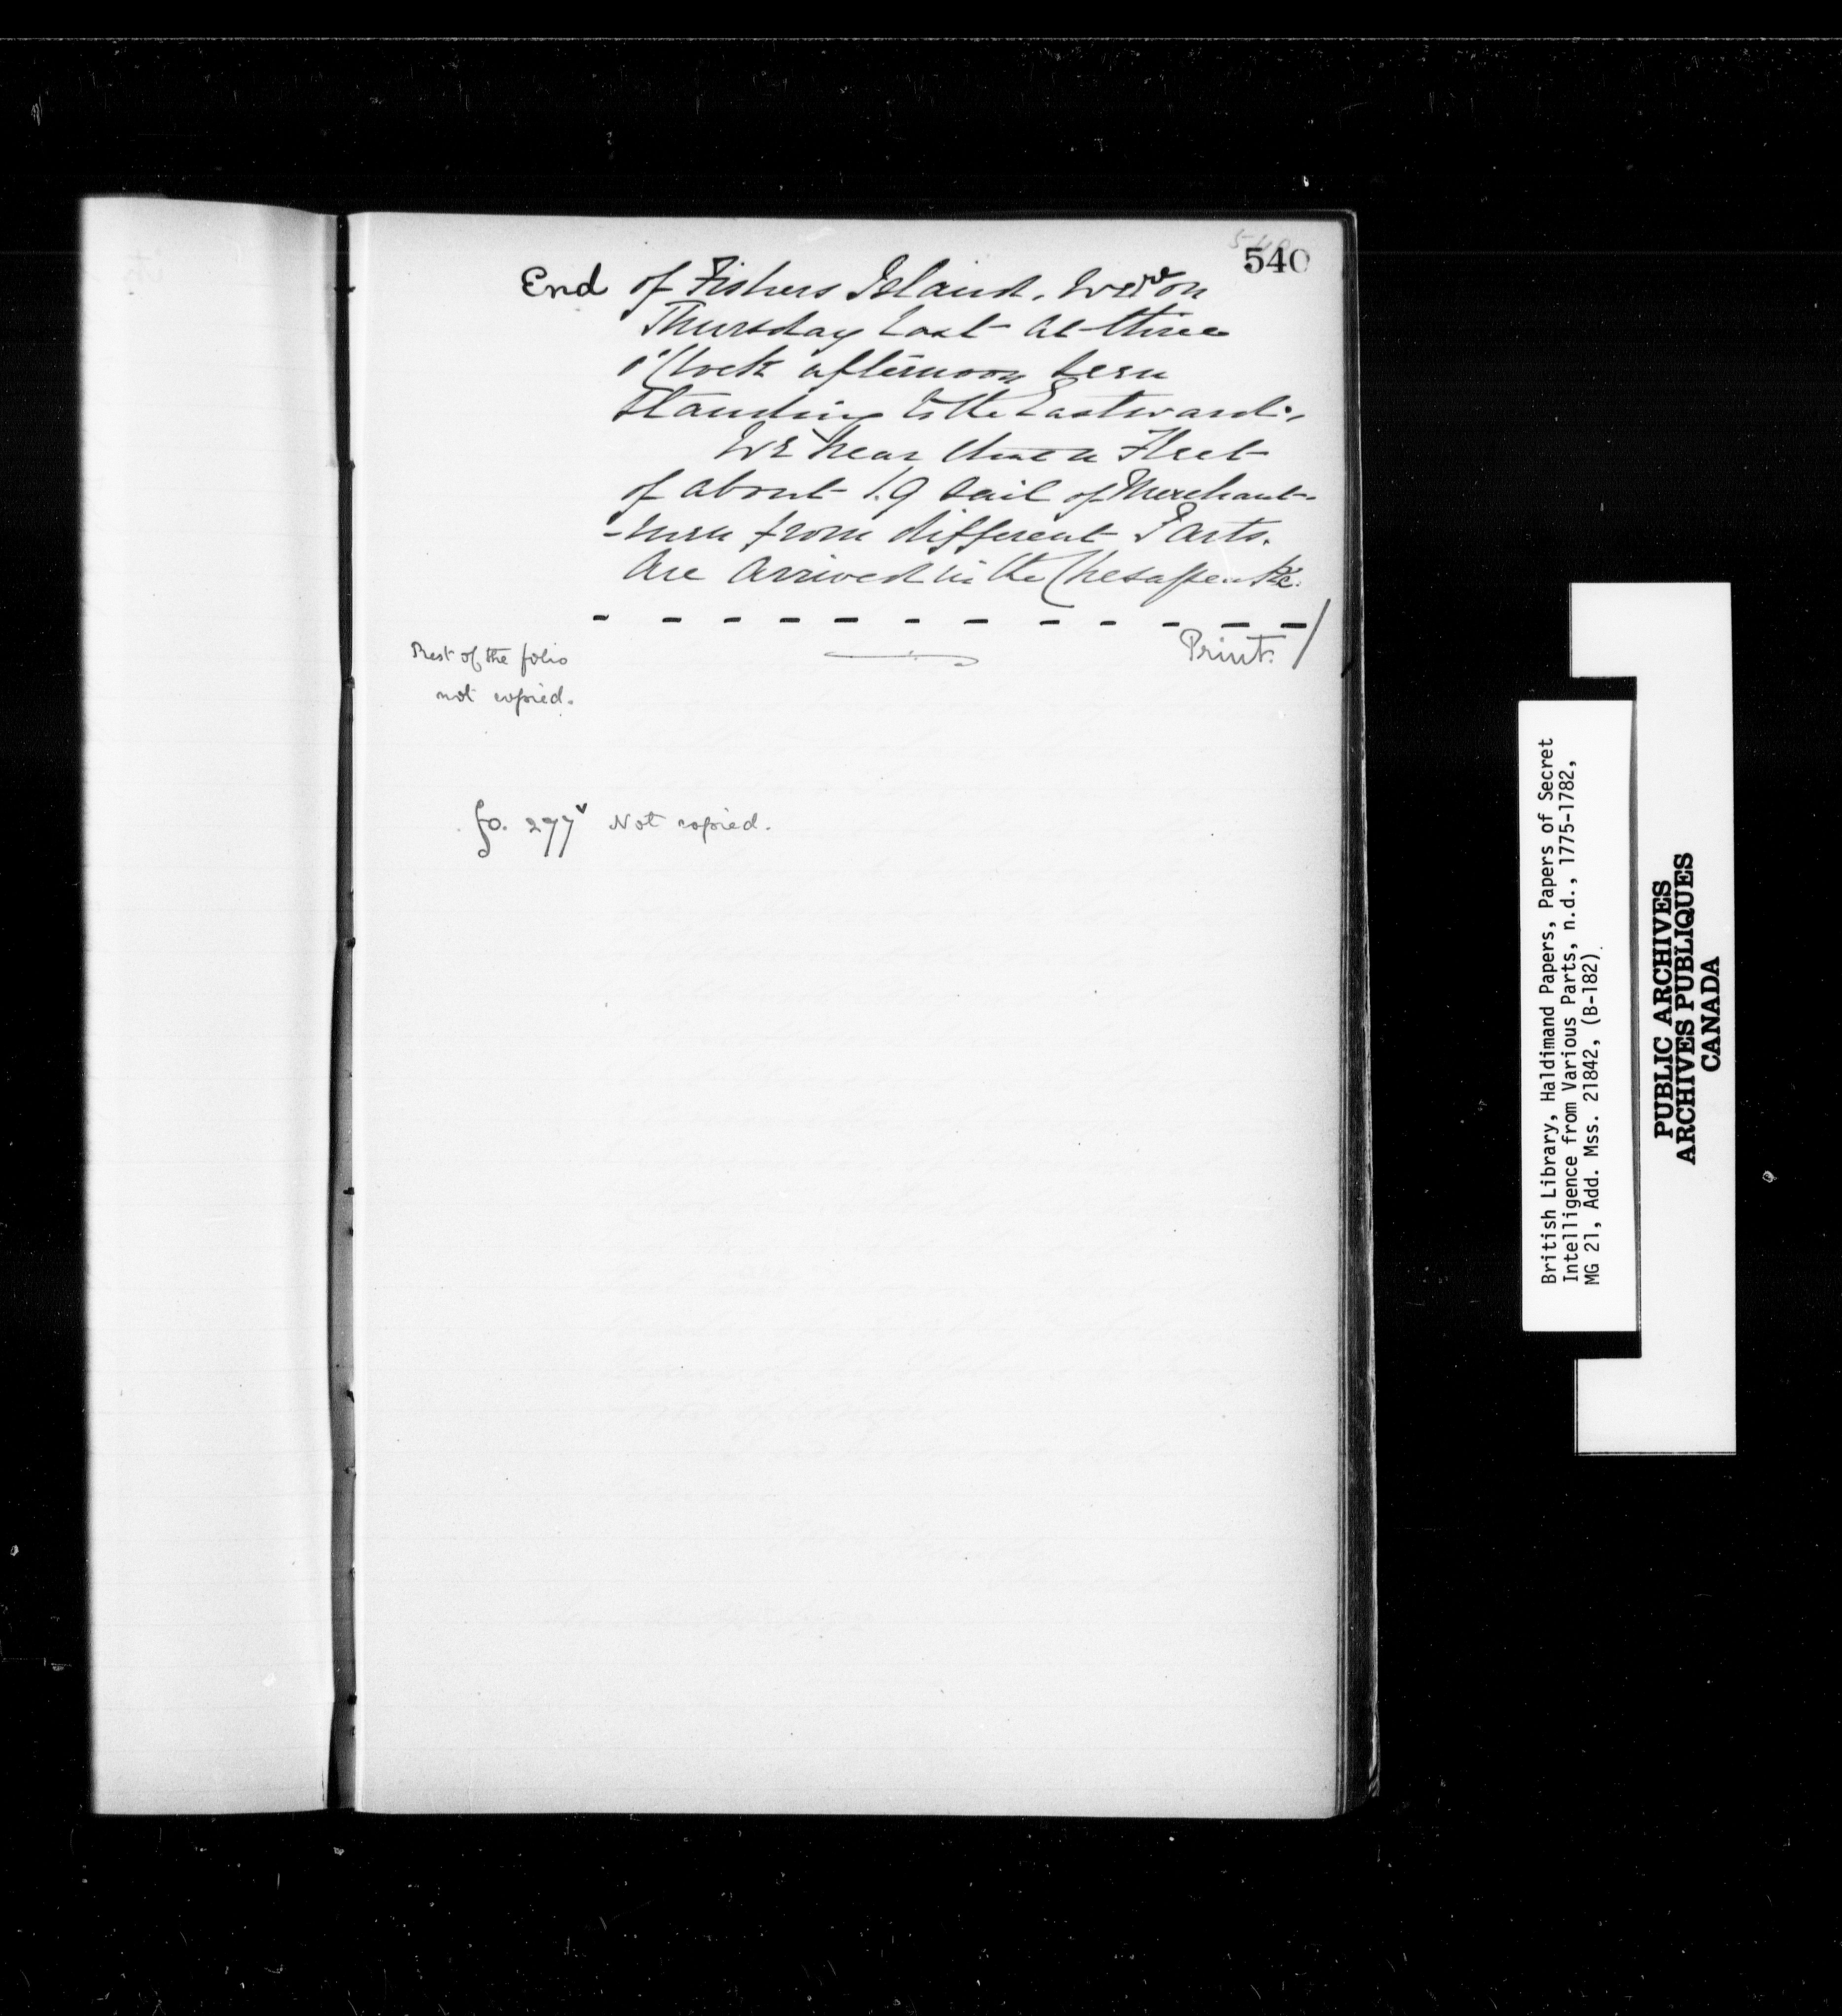 540
End of Fishers Island, were on
Thursday last at three
o'Clock afternoon seen
standing to the Eastward.
We hear that a Fleet
of about 19 sail of Merchant-
-men from different Parts.
Are arrived in the Chesapeake.
Print.
Rest of the folio
not copied.
fo. 277v Not copied.
British Library, Haldimand Papers, Papers of Secret
Intelligence from Various Parts, n.d., 1775-1782,
MG 21, Add. Mss. 21842, (B-182).
PUBLIC ARCHIVES
ARCHIVES PUBLIQUES
CANADA